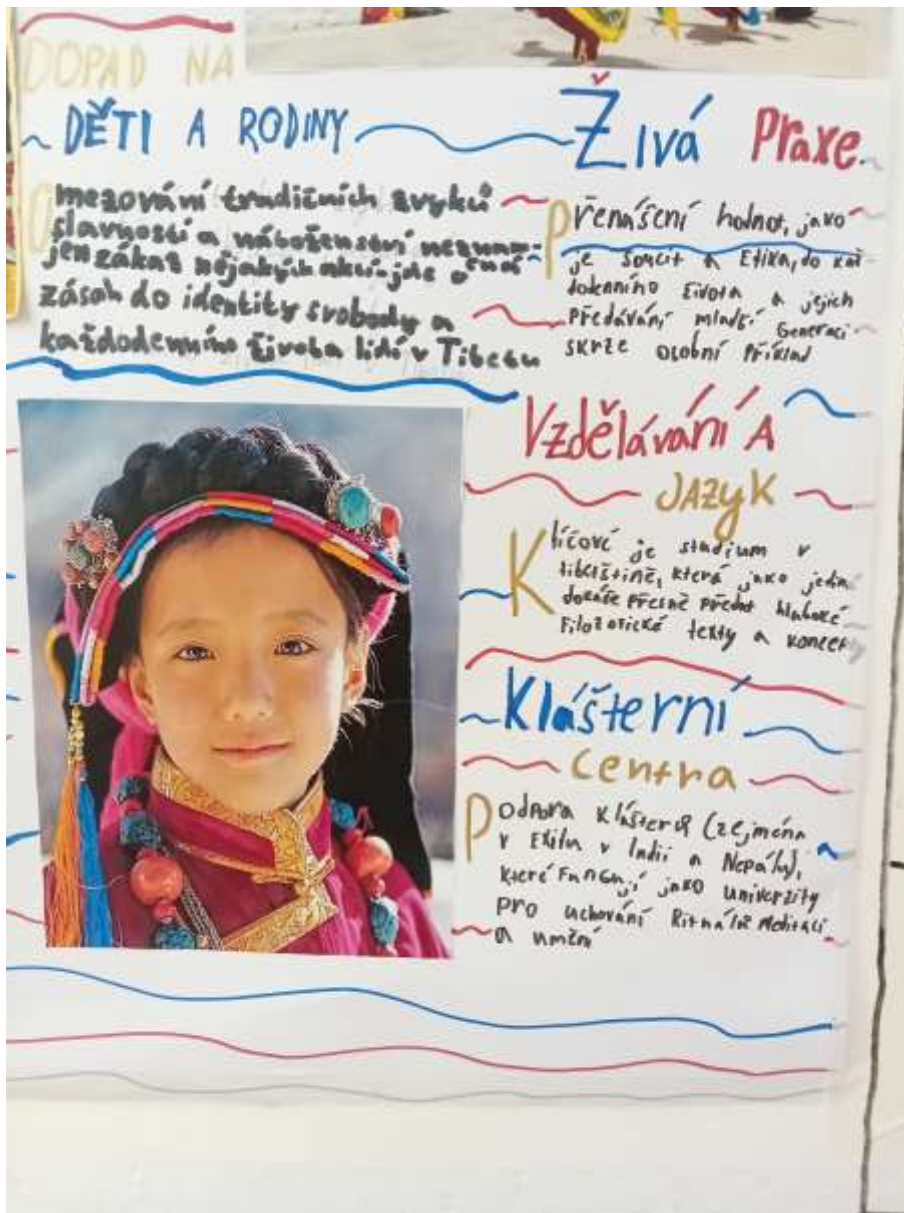 DOPAD NA
DĚTI A RODINY
Omezování tradičních zvyků
slavností a náboženství neznam-
jen zákaz nějakých akcí-jde o
zásah do identity svobody a
každodenního života lidí v Tibetu
Živá Praxe
Přenášení hodnot, jako
je soucit a Etika, do kaž
dodenního života a jejich
Předávání mladší Generaci
skrze osobní Příklad
Vzdělávání A
JAZyK
Klíčové je studium v
tibetštině, která jako jediná
dokáže Přesně Předat hluboké
Filozofické texty a koncepty
Klášterní
Centra
Podpora Klášterů (zejména
v Exilu v Indii a Nepálu),
které Fungují jako univerzity
pro uchování Rituálů Meditací
a umění